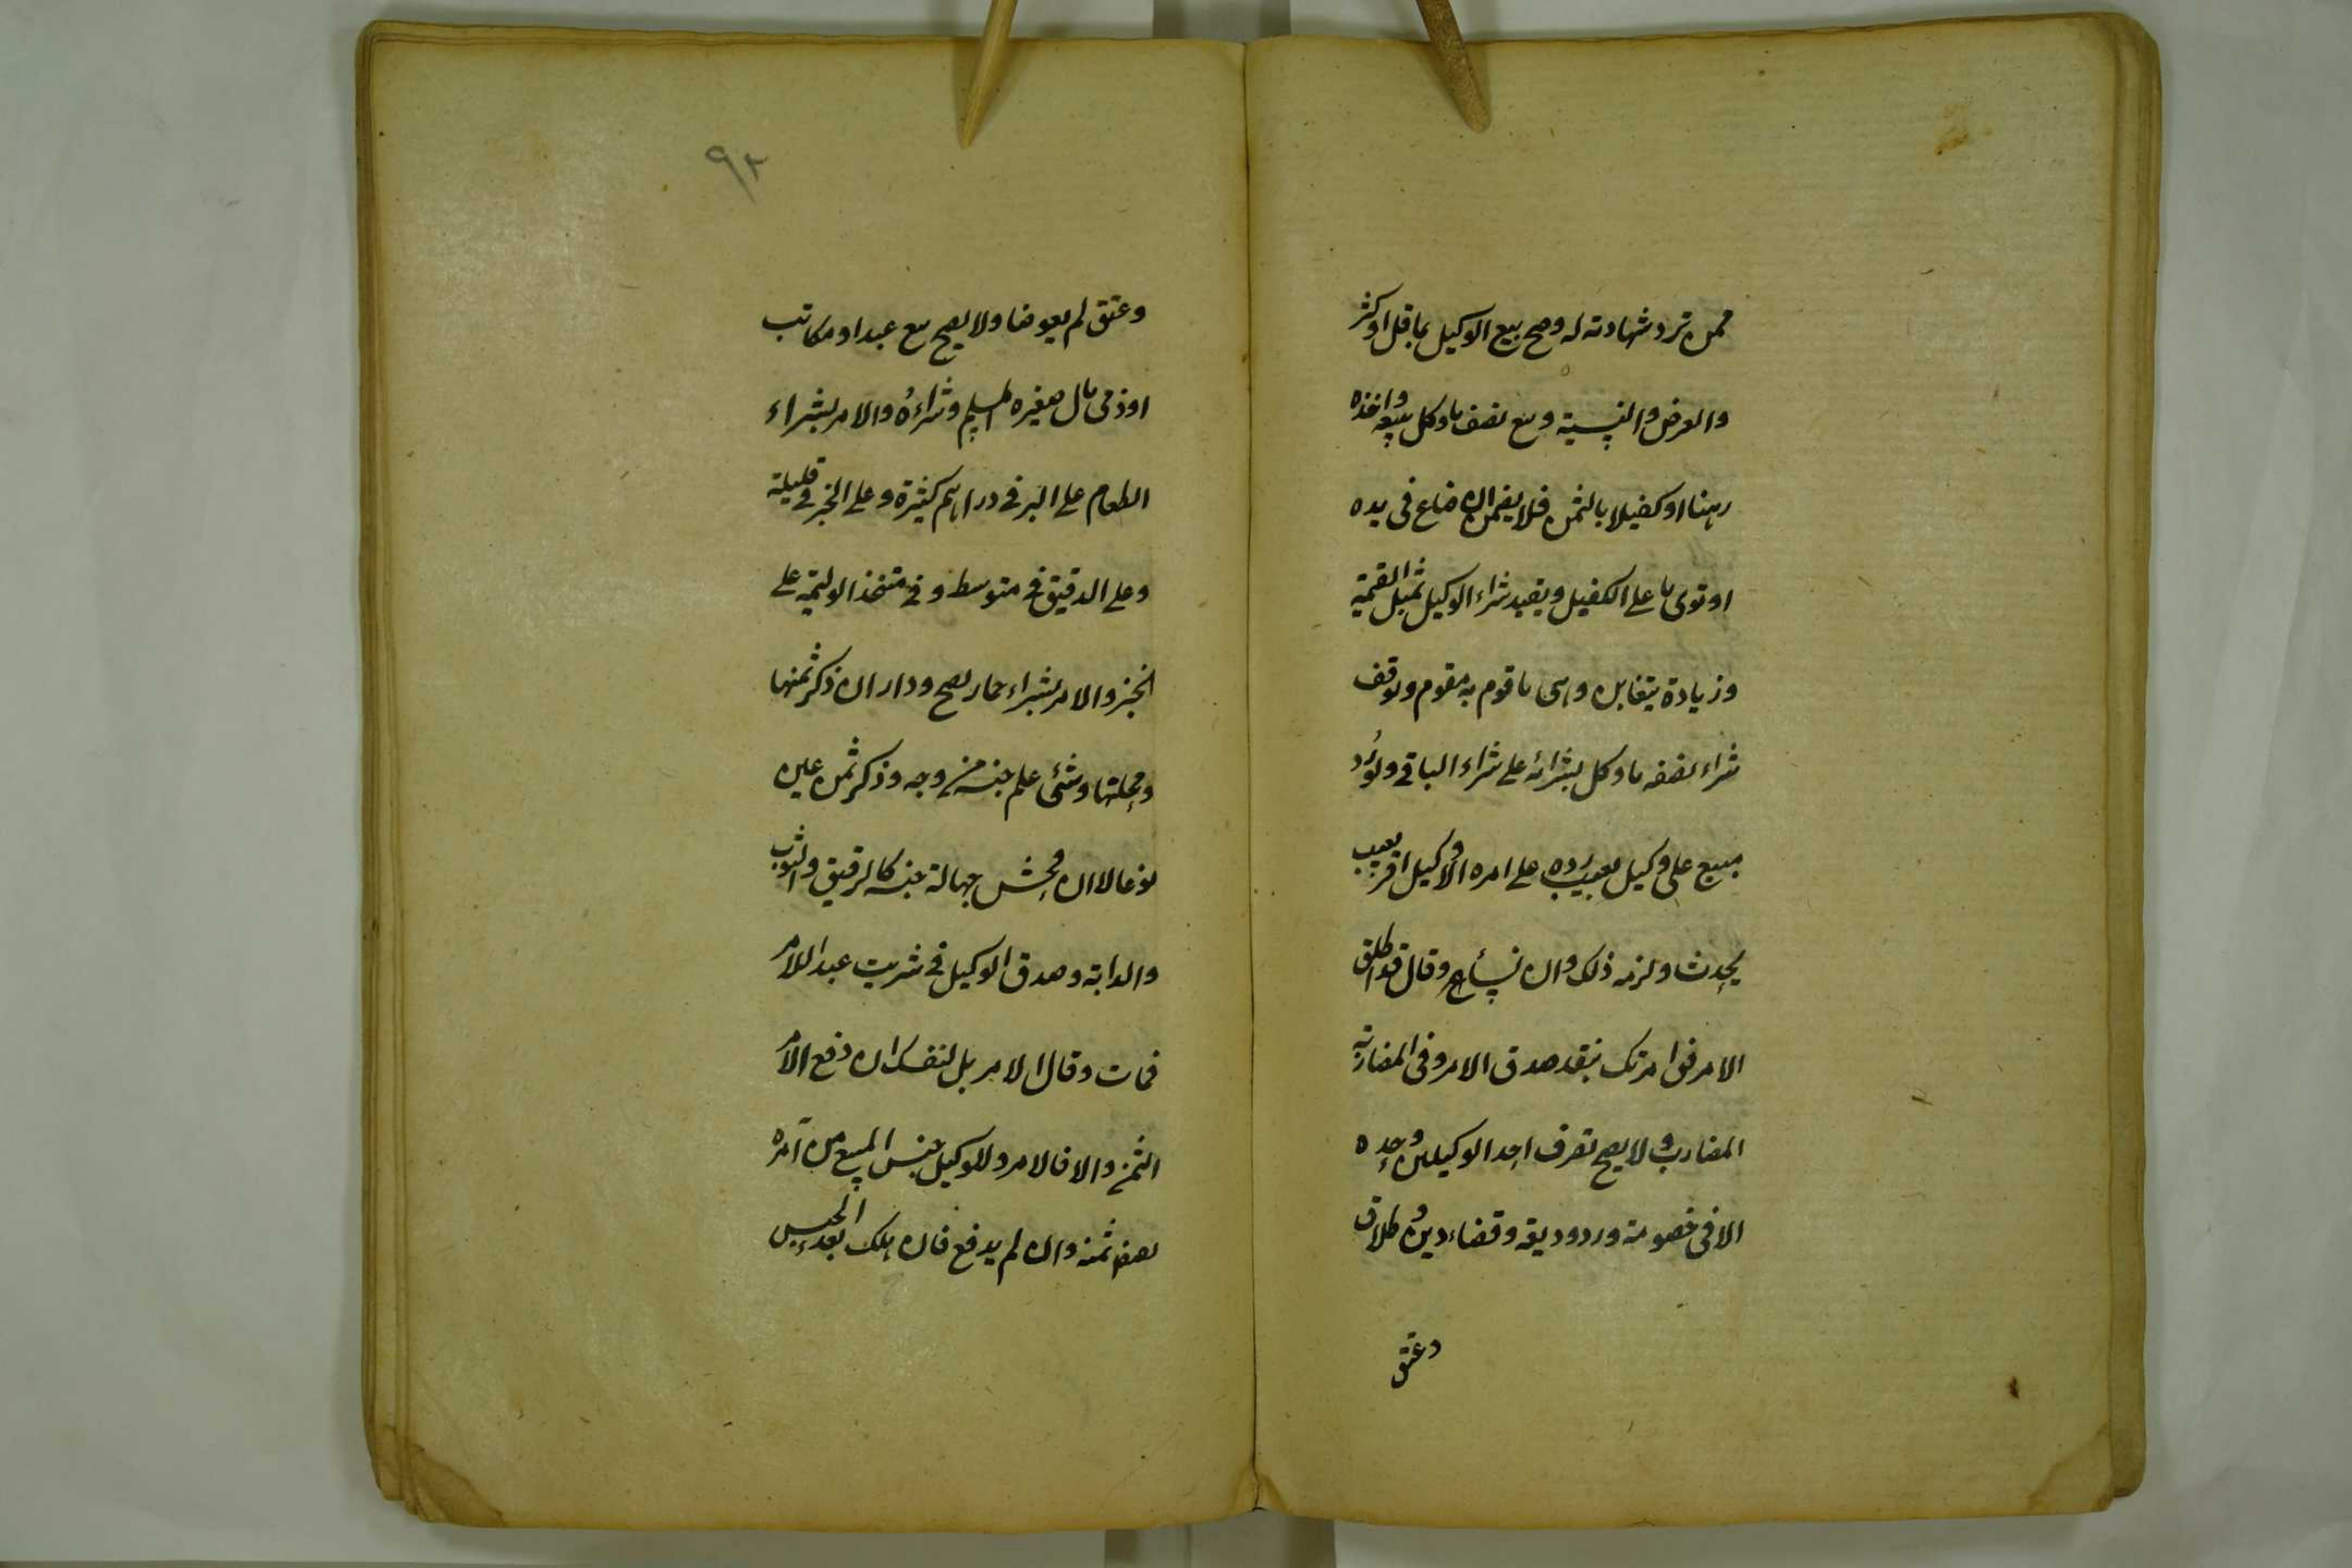 ممن ترد شهادته له وصح بيع الوكيل بما قل او كثر
والعرض والنسية وبيع نصف ما وكل ببيعه واخذه
رهنا او كفيلا بالثمن فلا يضمن ان ضاع فى يده
او توى ما على الكفيل ويقيد شراء الوكيل بمثل القيمة
وزيادة يتغابن وهى ما قوم به مقوم وتوقف
شراء نصف ما وكل بشرائه على شراء الباقى ولو رد
مبيع على وكيل بعيب رده على امره الا وكيل اقر بعيب
يحدث ولزمه ذلك وان نساء وقال قد اطلق
الامر فقال امرتك بنقد صدق الامر وفى المضاربة
المضارب ولا يصح تصرف احد الوكيلين وحده
الا فى خصومة ورد وديعة وقضاء دين وطلاق
وعتق
٩٢
وعتق لم يعوضا ولا يصح بيع عبد او مكاتب
او ذمى مال صغيره المسلم وشراءه والامر بشراء
الطعام على البر فى دراهم كثيرة وعلى الخبز فى قليلة
وعلى الدقيق فى متوسط وفى متخذ الوليمة على
الخبز والامر بشراء حمار يصح ودار ان ذكر ثمنها
ومحلتها وشئ علم جنسه من وجه وذكر ثمن عين
نوعا لا ان فحش جهالة جنسه كالرقيق والثوب
والدابة وصدق الوكيل فى شريت عبدا للامر
فمات وقال الامر بل لنفسك ان دفع الامر
الثمن والا فالامر وللوكيل حبس المبيع من آمره
لقبض ثمنه وان لم يدفع فان هلك بعد الحبس